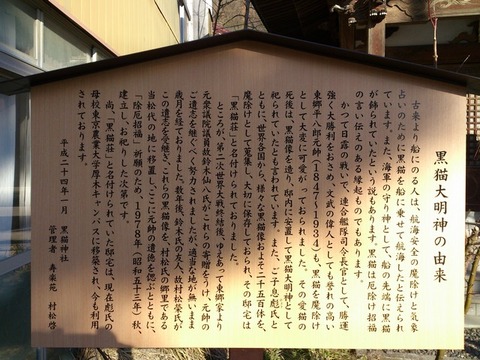 黒猫大明神の由来
古来より船にのる人は、航海安全の魔除けと気象
占いのために黒猫を船に乗せて航海したと伝えられ
ています。また、海軍の守り神として、船の先端に黒猫
が飾られていたという説もあります。黒猫は厄除け招福
の言い伝えのある縁起ものでもあります。
かつて日露の戦いで、連合艦隊司令長官として、勝運
強く大勝利をおさめ、文武の偉人としても誉れの高い
東郷平八郎元帥(1847〜1934)も、黒猫を魔除け
として大変に可愛がっておられました。その愛猫の
死後は、黒猫像を造り、邸内に安置して黒猫大明神として
祀られていたとも言われています。また、ご子息彪氏と
ともに、世界各国から、様々な黒猫像およそ二千五百体を、
魔除けとして蒐集し、大切に保存しておられ、その邸宅は
「黒猫荘」と名付けられておりました。
ところが、第二次世界大戦終結後、ゆえあって東郷家より
元衆議院議員故鈴木仙八氏がこれらの寄贈をうけ、元帥の
ご遺志を継ぐべく努力されましたが、適当な地が無いまま
歳月を経ておりました。数年後、鈴木氏の友人、故村松榮氏が
この遺志を受継ぎ、これらの黒猫像を、村松氏の郷里である
当松代の地に移置し、ここに元帥の遺徳を偲ぶとともに、
「除厄招福」祈願のため、1978年(昭和五十三年)秋、
建立し、お祀りした次第です。
尚、「黒猫荘」と名付けられていた邸宅は、現在彪氏の
母校東京農業大学厚木キャンパスに移築され、今も利用
されております。
平成二十四年一月　黒猫神社
管理者　寿楽苑　村松啓